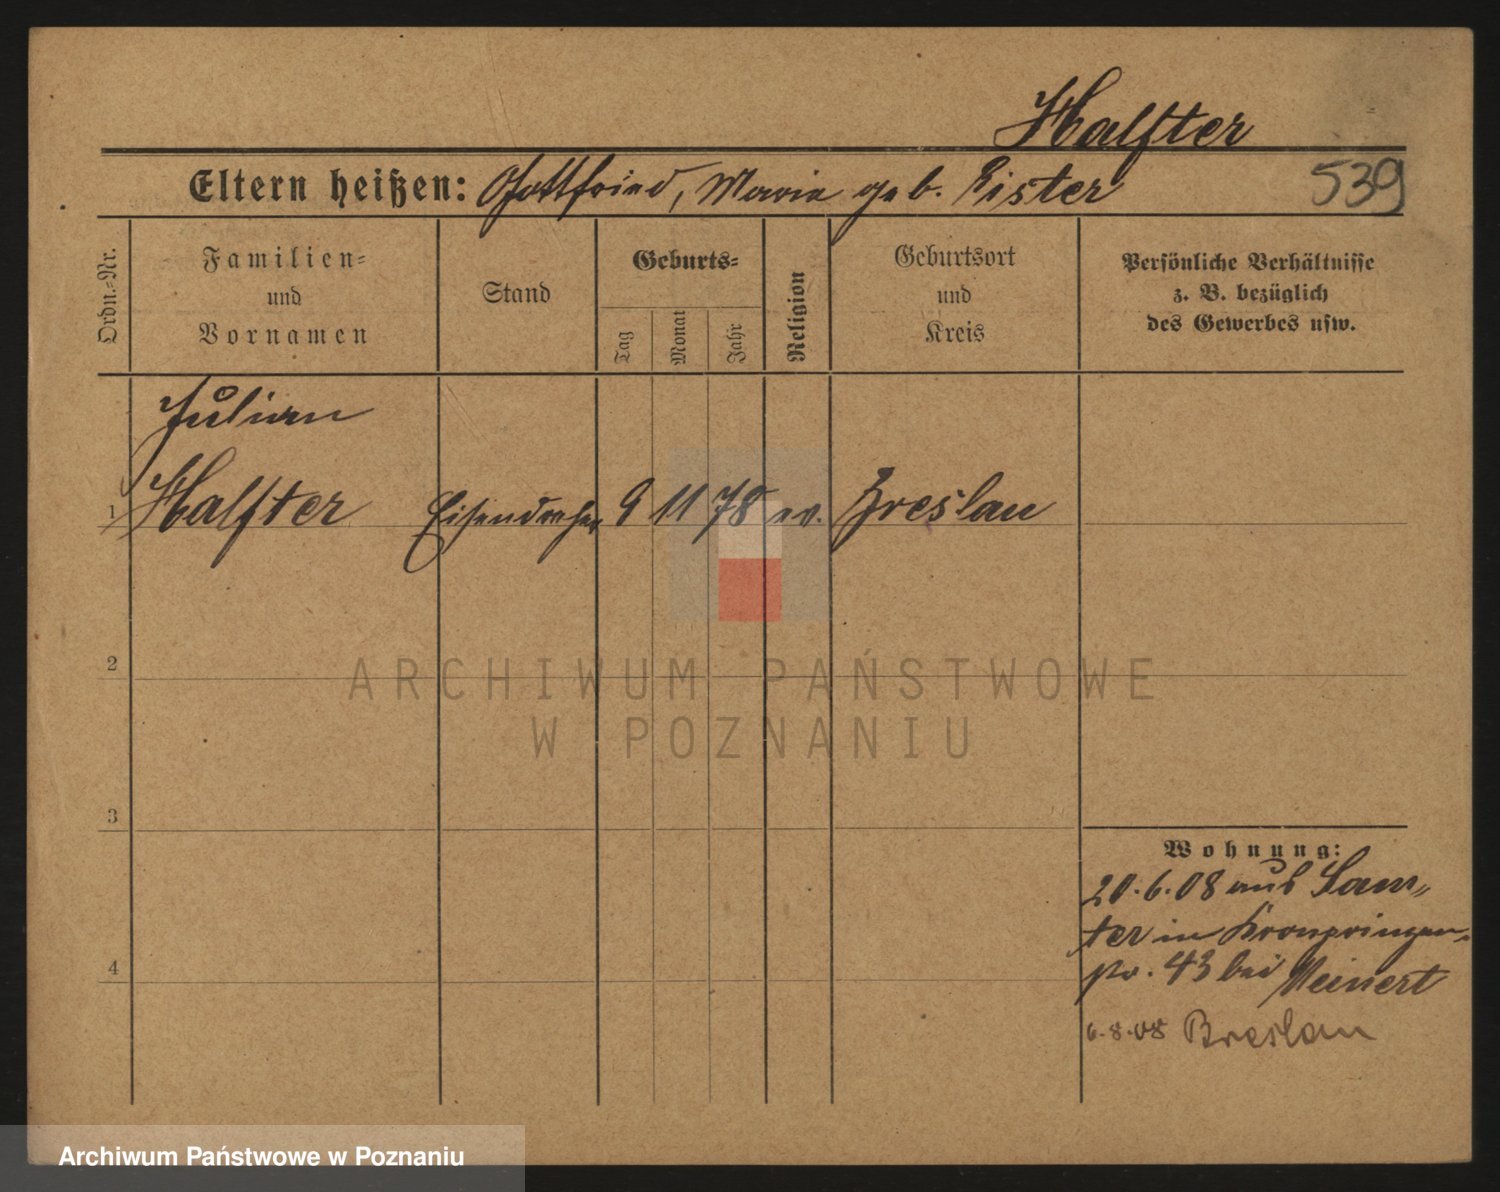 Halfter
Eltern heißen: Gottfried, Marie geb. Rister
539
Ordn.-Nr.
Familien-
und
Vornamen
Stand
Geburts-
Tag
Monat
Jahr
Religion
Geburtsort
und
Kreis
Persönliche Verhältnisse
z. B. bezüglich
des Gewerbes usw.
Julian
1 Halfter Eisendreher 9 11 78 ev. Breslau
2
ARCHIWUM PAŃSTWOWE
W POZNANIU
3
Wohnung:
20.6.08 aus Sam„
ter in Kronprinzen-
str. 43 bei Meinert
4
6.8.08 Breslau
Archiwum Państwowe w Poznaniu